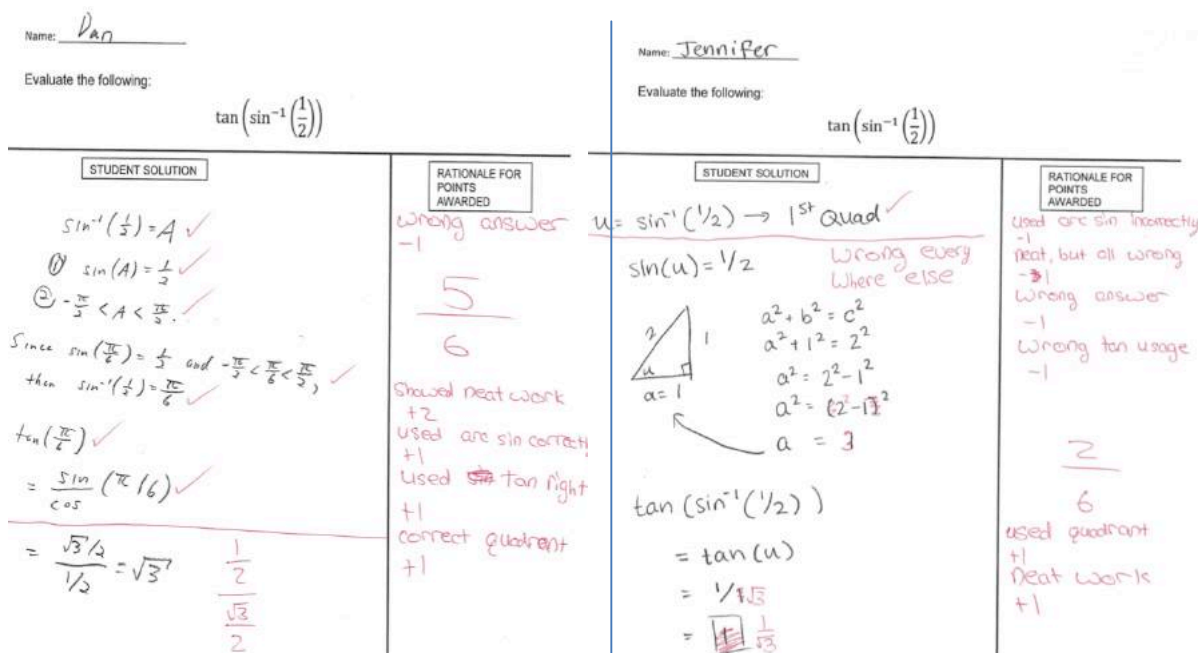 Name: Dan
Evaluate the following:
tan(sin⁻¹(1/2))
STUDENT SOLUTION
sin⁻¹(1/2) = A ✓
① sin(A) = 1/2 ✓
② -π/2 < A < π/2. ✓
Since sin(π/6) = 1/2 and -π/2 < π/6 < π/2, ✓
then sin⁻¹(1/2) = π/6 ✓
tan(π/6) ✓
= sin/cos (π/6) ✓
= (√3/2)/(1/2) = √3
1/2
√3/2
RATIONALE FOR
POINTS
AWARDED
wrong answer
-1
5/6
showed neat work
+2
used arc sin correctl
+1
used tan right
+1
correct quadrant
+1
Name: Jennifer
Evaluate the following:
tan(sin⁻¹(1/2))
STUDENT SOLUTION
u = sin⁻¹(1/2) → 1st Quad ✓
sin(u) = 1/2
wrong every
where else
2
1
u
a = 1
a² + b² = c²
a² + 1² = 2²
a² = 2² - 1²
a² = (2 - 1)²
a = 3
tan(sin⁻¹(1/2))
= tan(u)
= 1/√3
= 1/√3
RATIONALE FOR
POINTS
AWARDED
used arc sin incorrectly
-1
neat, but all wrong
-1
wrong answer
-1
wrong tan usage
-1
2/6
used quadrant
+1
neat work
+1